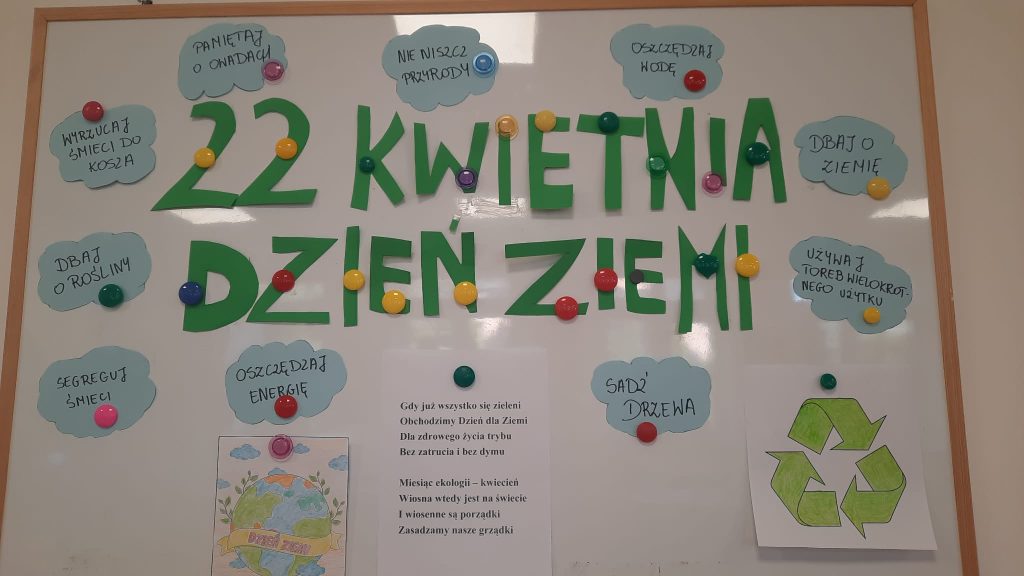 PAMIĘTAJ
O OWADACH
NIE NISZCZ
PRZYRODY
OSZCZĘDZAJ
WODĘ
WYRZUCAJ
ŚMIECI DO
KOSZA
22 KWIETNIA
DBAJ O
ZIEMIĘ
DZIEŃ ZIEMI
DBAJ
O ROŚLINY
UŻYWAJ
TOREB WIELOKROT-
NEGO UŻYTKU
SEGREGUJ
ŚMIECI
OSZCZĘDZAJ
ENERGIĘ
SADŹ
DRZEWA
Gdy już wszystko się zieleni
Obchodzimy Dzień dla Ziemi
Dla zdrowego życia trybu
Bez zatrucia i bez dymu
Miesiąc ekologii – kwiecień
Wiosna wtedy jest na świecie
I wiosenne są porządki
Zasadzamy nasze grządki
DZIEŃ ZIEMI